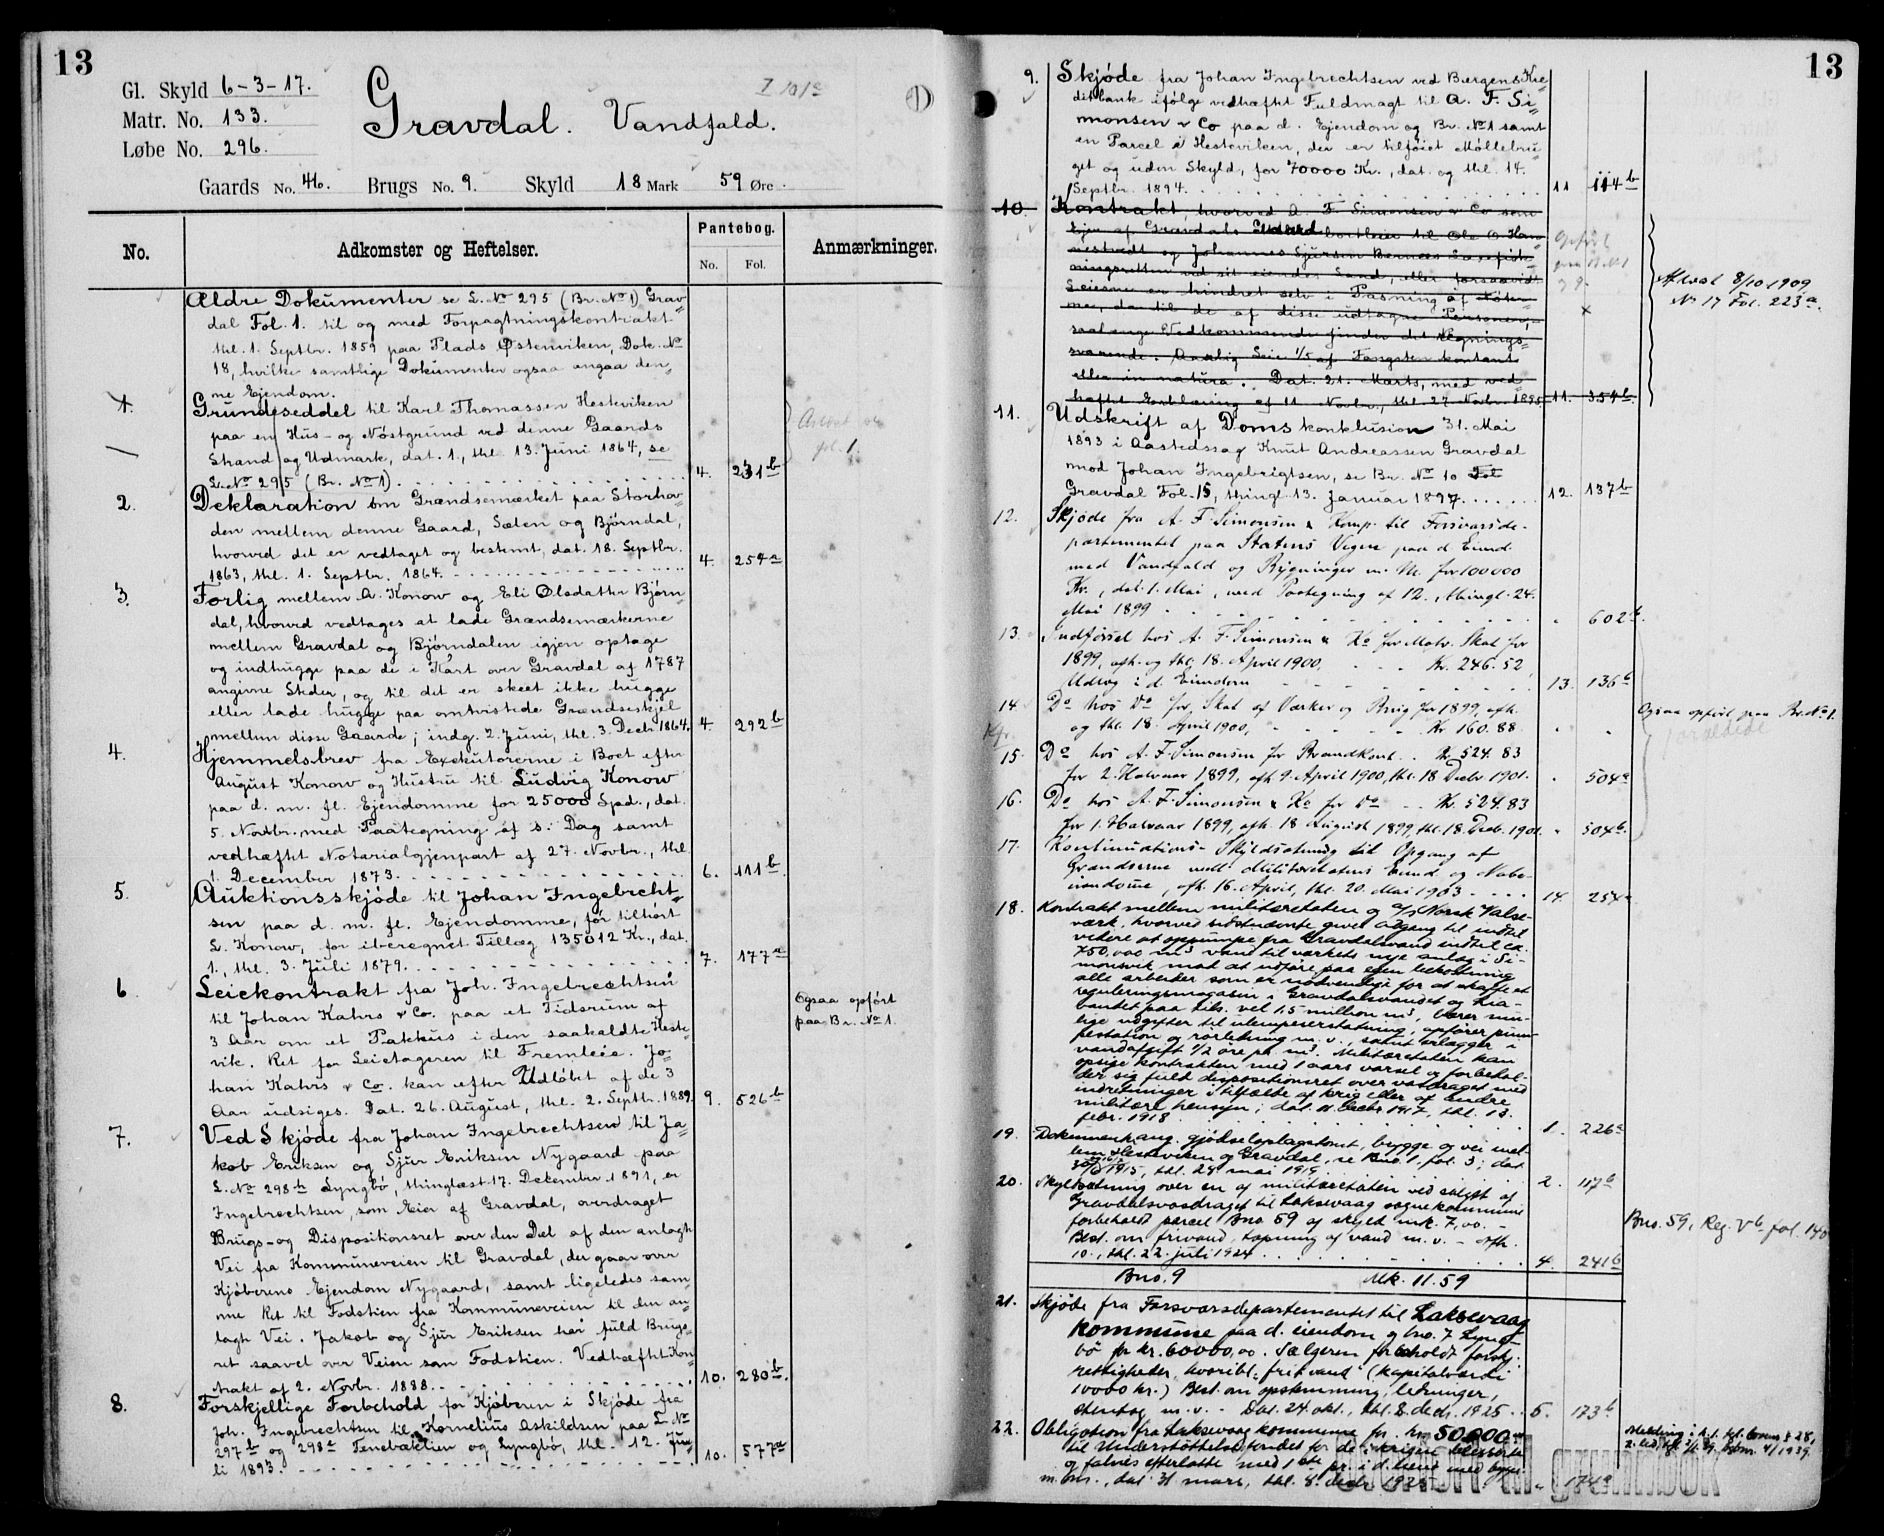 13
Gl. Skyld 6-3-17.
Matr. No. 133.
Løbe No. 296.
Gravdal. Vandfald.
Gaards No. 46. Brugs No. 9. Skyld 18 Mark 59 Øre.
No.
Adkomster og Heftelser.
Pantebog.
No. Fol.
Anmærkninger.
Ældre Dokumenter se L. No 295 (Br. No 1) Grav„
dal Fol. 1. til og med Forpagtningskontrakt
thl. 1. Septbr. 1859 paa Plads Østenviken, Dok. No
18, hvilke samtlige Dokumenter ogsaa angaa den„
ne Ejendom.
1. Grundseddel til Karl Thomassen Hesteviken
paa en Hus- og Nøstgrund ved denne Gaards
Strand og Udmark, dat. 1., thl. 13. Juni 1864, se
L. No 295 (Br. No 1). 4. 231b
fol. 1.
2. Deklaration om Grændsemærket paa Storhov„
den mellem denne Gaard, Sælen og Bjørndal,
hvorved det er vedtaget og bestemt, dat. 18. Septbr.
1863, thl. 1. Septbr. 1864. 4. 254a
3. Forlig mellem A. Konow og Eli Olsdatter Bjørn„
dal, hvorved vedtages at lade Grændsemærkerne
mellem Gravdal og Bjørndalen igjen optage
og indhugge paa de i Kart over Gravdal af 1787
angivne Steder, og til det er skeet ikke hugge
eller lade hugge paa omtvistede Grændseskjel
mellem disse Gaarde; indg. 2. Juni, thl. 3. Decbr. 1864. 4. 292b
4. Hjemmelsbrev fra Exekutorerne i Boet efter
August Konow og Hustru til Ludvig Konow
paa d. m. fl. Ejendomme for 25000 Spd., dat.
5. Novbr. med Paategning af s. Dag samt
vedhæftet Notarialgjenpart af 27. Novbr., thl.
1. December 1873. 6. 111b
5. Auktionsskjøde til Johan Ingebrecht„
sen paa d. m. fl. Ejendomme, før tilhørt
L. Konow, for iberegnet Tillæg 135012 Kr., dat.
1., thl. 3. Juli 1879. 7. 177a
6. Leiekontrakt fra Joh. Ingebrechtsen
til Johan Kahrs & Co. paa et Tidsrum af
3 Aar om et Pakhus i den saakaldte Heste„
vik. Ret for Leietageren til Fremleie. Jo„
han Kahrs & Co. kan efter Udløbet af de 3
Aar udsiges. Dat. 26. August, thl. 2. Septbr. 1889. 9. 526b
Ogsaa opført
paa Br. No 1.
7. Ved Skjøde fra Johan Ingebrechtsen til Ja„
kob Eriksen og Sjur Eriksen Nygaard paa
L. No 298b Lyngbø, thinglæst 17. Dekember 1891, er
Ingebrechtsen, som Eier af Gravdal, overdraget
Brugs- og Dispositionsret over den Del af den anlagte
Vei fra Kommuneveien til Gravdal, der gaar over
Kjøberens Ejendom Nygaard, samt ligeledes sam„
me Ret til Fodstien fra Kommuneveien til den an„
lagte Vei. Jakob og Sjur Eriksen har fuld Brugs„
ret saavel over Veien som Fodstien. Vedhæftet Kon„
trakt af 2. Novbr. 1888. 10. 280b.
8. Forskjellige Forbehold for Kjøberen i Skjøde fra
Joh. Ingebrechtsen til Kornelius Askildsen paa L. No
297b og 298a Tenebæklien og Lyngbø, thl. 12. Ju„
li 1893. 10. 577a
13
9. Skjøde fra Johan Ingebrechtsen ved Bergens Kre„
ditbank ifølge vedhæftet Fuldmagt til A. F. Si„
monsen & Co paa d. Ejendom og Br. No 1 samt
en Parcel i Hesteviken, der er tilføiet Møllebru„
get og uden Skyld, for 70000 Kr., dat. og thl. 14.
Septbr. 1894. 11 114b
10. Kontrakt, hvorved A. F. Simonsen & Co som
Ejer af Gravdals bortleier til Ole O. Han„
nestvedt og Johannes Sjursen Laxefisk„
ningsretten ved sit eiendes Land, eller forsaavidt
Leierne er hindret selv i Pasning af Nøter„
ne, da til de af disse udtagne Personer,
saalænge Vedkommende finder det Regnings„
svarende. Aarlig Leie 1/5 af Fangsten kontant
eller in natura. Dat. 21. Marts, med ved„
hæftet Erklæring af 11. Novbr., thl. 27. Novbr. 1895. 11. 354b.
Aflæst 8/10 1909
No 17 Fol. 223a.
11. Udskrift af Domskonklusion 31. Mai
1893 i Aastedssag Knut Andreassen Gravdal
mod Johan Ingebrigtsen, se Br. No 10
Gravdal Fol. 15, thingl. 13. Januar 1897. 12. 137b
12. Skjøde fra A. F. Simonsen & Komp. til Forsvarsde-
partementet paa Statens Vegne paa d. Eiend.
med Vandfald og Bygninger m. M. for 100000
Kr., dat. 1. Mai, med Paategning af 12., thingl. 24.
Mai 1899 602b
13. Indførsel hos A. F. Simonsen & Ko for Matr. Skat for
1899, afh. og thl. 18. April 1900, Kr. 246.52
Udlæg i d. Eiendom 13. 136b
14. Do hos Do for Skat af Værker og Brug for 1899, afh.
og thl. 18. April 1900, Kr 160.88
Ogsaa opført paa Br. No 1.
15. Do hos A. F. Simonsen for Brandkont. Kr. 524.83
for 2. Halvaar 1899, afh. 9. April 1900, thl. 18 Decbr. 1901. 504a
16. Do hos A. F. Simonsen & Ko for Do Kr. 524.83
for 1. Halvaar 1899, afh. 18 August 1899, thl. 18. Decb. 1901. 504b.
17. Kontinuations-Skyldsætning til Opgang af
Grændserne med Militæretatens Eiend. og Nabo-
eiendome, afh. 16. April, thl. 20. Mai 1903 14. 254a
18. Kontrakt mellem militæretaten og A/S Norsk Valse-
værk, hvorved sidstnævnte gives adgang til indtil
videre at oppumpe fra Gravdalsvand indtil ca.
750,000 m3 vand til værkets nye anlæg i Si-
monsvik mod at utføre paa egen bekostning
alle arbeider som er nødvendige for at skaffe et
reguleringsmagasin i Gravdalsvandet og Lia-
vandet paa tils. vel 1.5 million m3, bærer mu-
lige utgifter til ulempeerstatning, opfører pum-
pestation og rørledning m. v., samt erlægger i
vandafgift 1/2 øre pr. m3. Militæretaten kan
opsige kontrakten med 1 aars varsel og forbehol-
der sig fuld dispositionsret over vasdraget med
indretninger i tilfælde af krig eller af andre
militære hensyn; dat. 11. decbr. 1917, thl. 13.
febr. 1918 1. 226a
19. Dokument ang. gjødseloplagstomt, brygge og vei mel-
lem Hesteviken og Gravdal, se Bno. 1, fol. 3; dat.
1915, thl. 28 mai 1919. 2. 117b
20. Skyldsætning over en af militæretaten ved salget af
Gravdalsvasdraget til Laksevaag sognekommune
forbeholdt parcel Bno 59 af skyld mk. 7,00. -
Best. om frivand, tapning af vand m. v. - afh.
10., thl. 22. juli 1924 4. 241b
Bno. 59, Reg. Vb, fol. 140
Bno. 9 Mk. 11.59
21. Skjøde fra Forsvarsdepartementet til Laksevaag
kommune paa d. eiendom og bno. 7 Lyng-
bø for kr. 60000,00. Sælgeren forbeholdt forskj.
rettigheder, hvoribl. frit vand (kapitalværdi
10000 kr.) Best. om opdemming, ledninger,
stenbog m. v. - Dat. 24. okt., thl. 8. decbr. 1925 5. 173b
22. Obligation fra Laksevaag kommune for kr. 50,000.00
til Understøttelsesfondet for de i krigen
og faldnes efterlatte med 1ste pr. i d. eiend. med bygn.
m. m., dat. 31 mars, thl. 8. decbr. 1925 174a